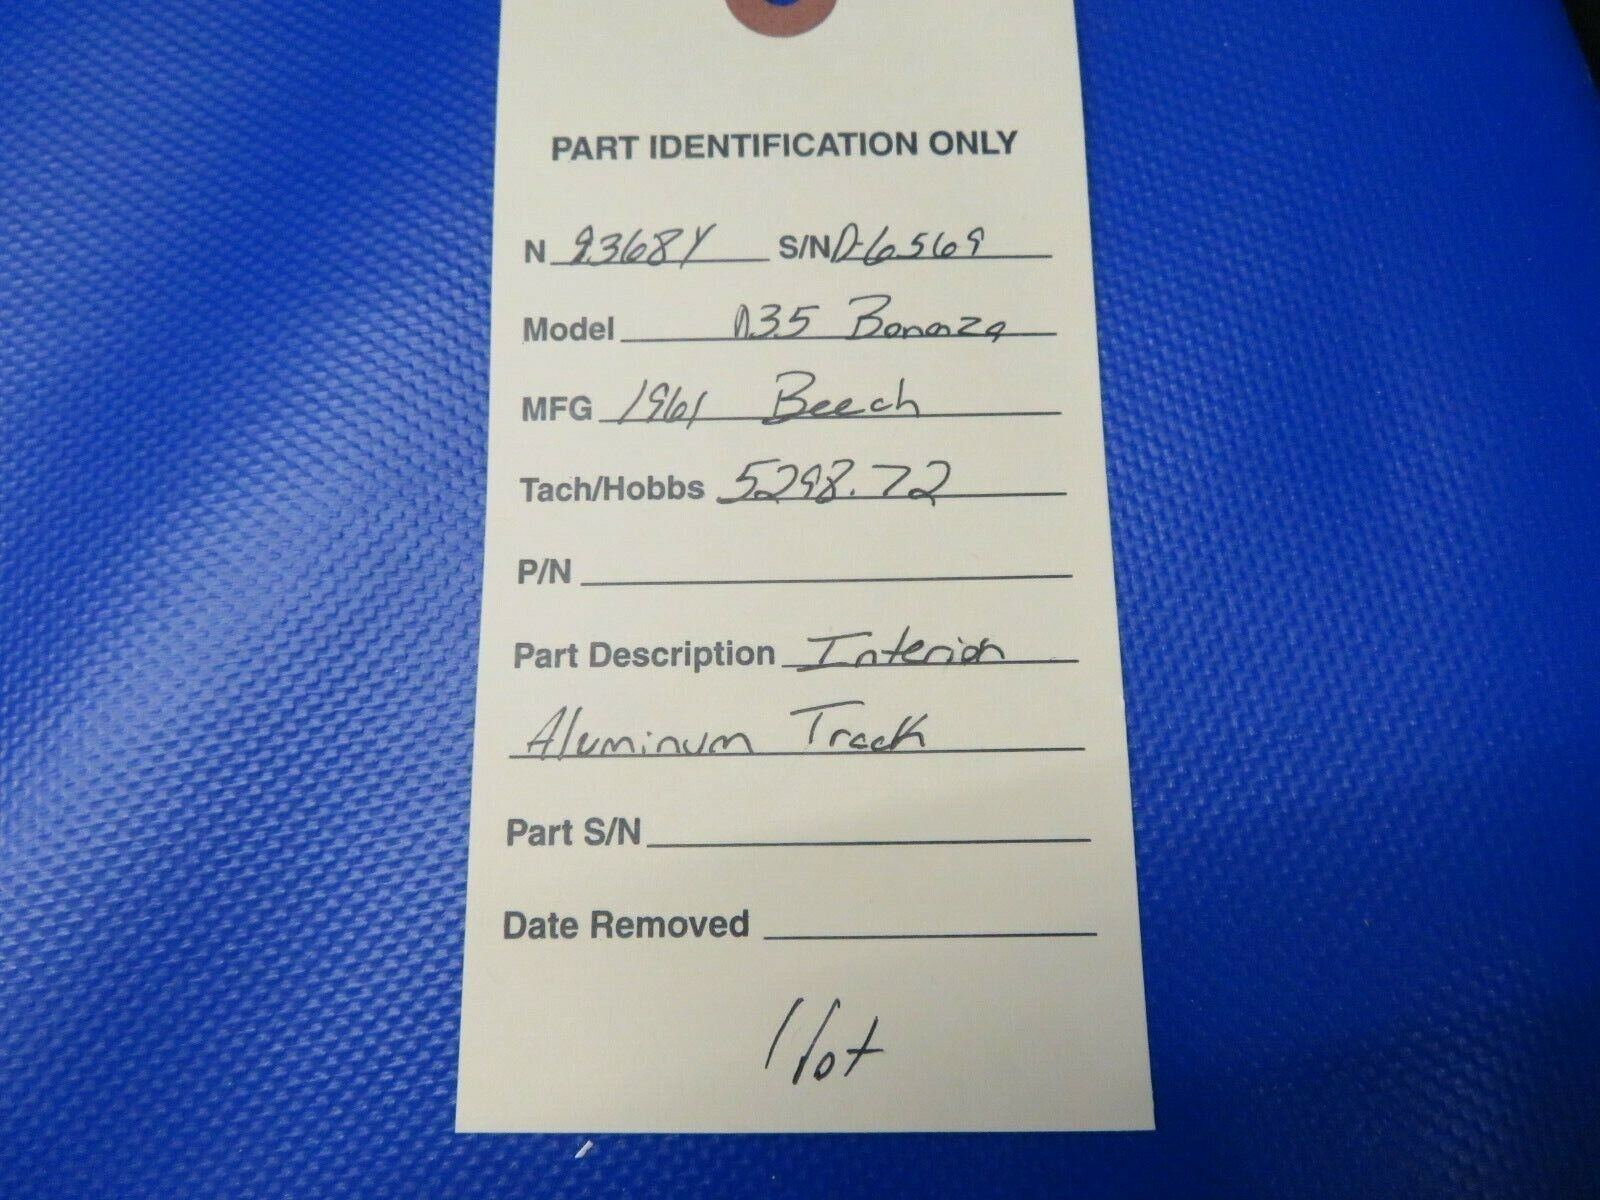 PART IDENTIFICATION ONLY
N 9368Y S/N D-6569
Model N35 Bonanza
MFG 1961 Beech
Tach/Hobbs 5298.72
P/N
Part Description Interior
Aluminum Track
Part S/N
Date Removed
1 lot